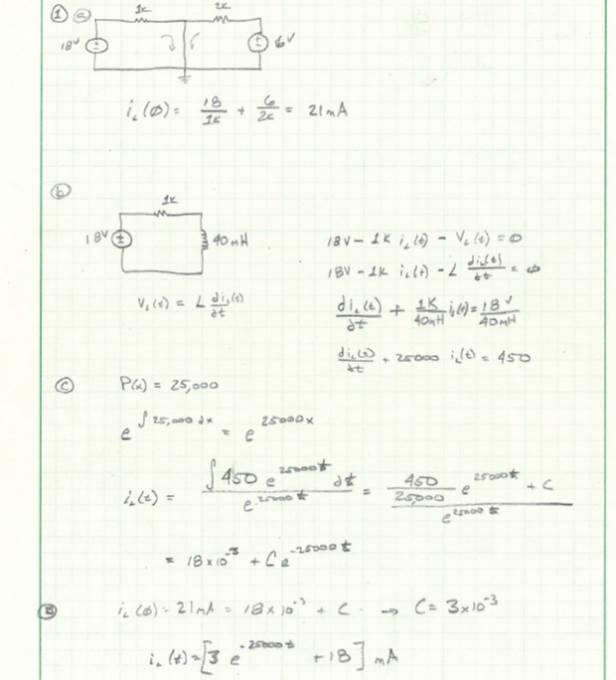 ① ⓐ 1K 2K
18V 6V
i_L(∅) = 18/1K + 6/2K = 21mA
ⓑ
1K
18V 40mH
V_L(t) = L di_L(t)/dt
18V - 1K i_L(t) - V_L(t) = 0
18V - 1K i_L(t) - L di_L(t)/dt = ∅
di_L(t)/dt + 1K/40mH i_L(t) = 18V/40mH
di_L(t)/dt + 25000 i_L(t) = 450
ⓒ P(x) = 25,000
e^∫25,000dx = e^25000x
i_L(t) = ∫450 e^25000t dt / e^25000t = (450/25,000 e^25000t + C) / e^25000t
= 18x10^-3 + Ce^-25000t
i_L(∅) = 21mA = 18x10^-3 + C → C = 3x10^-3
i_L(t) = [3 e^-25000t + 18] mA